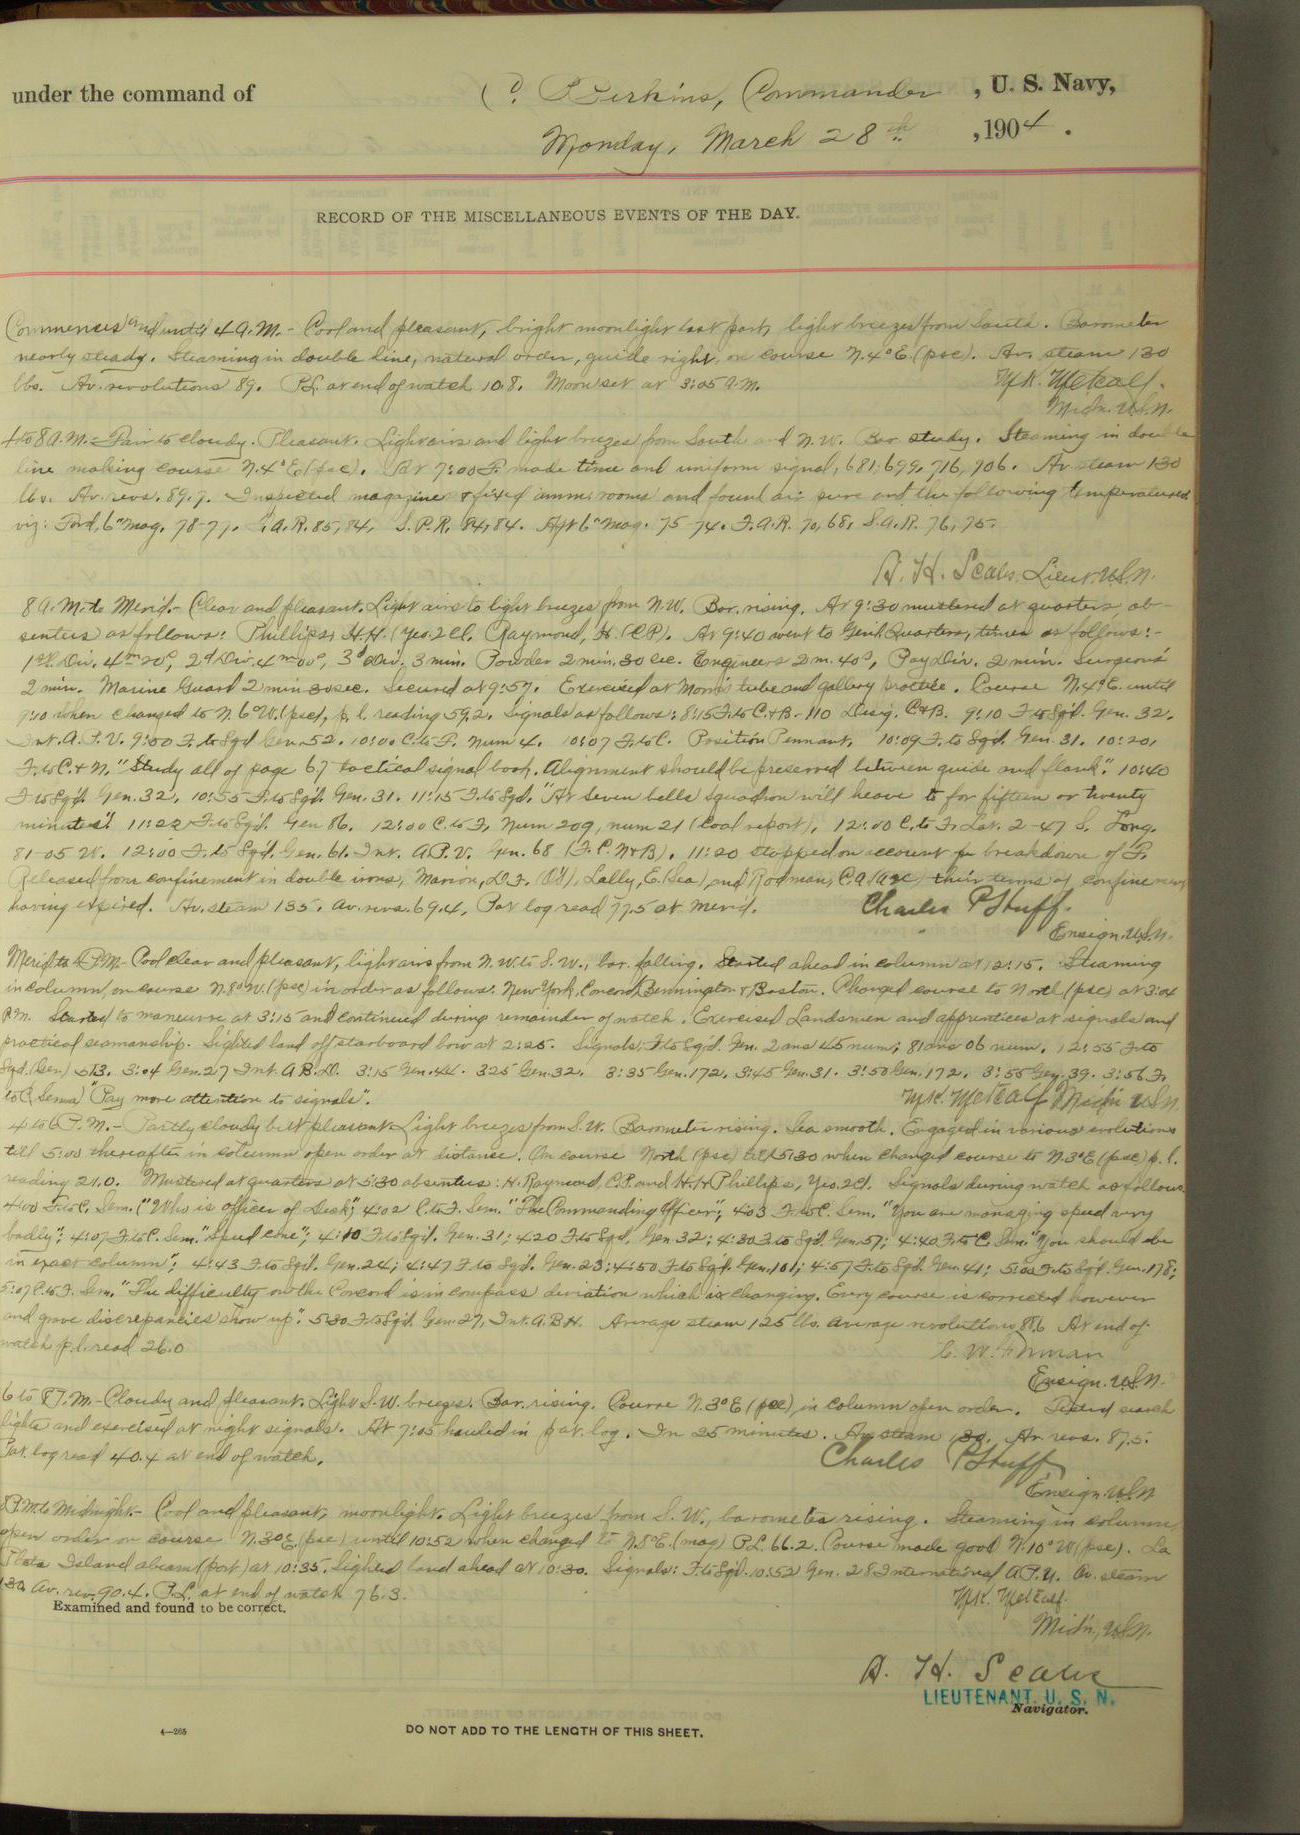 under the command of C. P. Perkins, Commander, U. S. Navy,
Monday, March 28th, 1904.
RECORD OF THE MISCELLANEOUS EVENTS OF THE DAY.
Commences and until 4 A.M. - Cool and pleasant, bright moonlight last part, light breezes from South. Barometer
nearly steady. Steaming in double line, natural order, guide right, on course N.4°E. (psc). Av. steam 130
lbs. Av. revolutions 89. P.L. at end of watch 10.8. Moon set at 3:05 A.M. M.K. Metcalf.
Midn. U.S.N.
4 to 8 A.M. - Fair to cloudy. Pleasant. Light airs and light breezes from South and N.W. Bar. steady. Steaming in double
line making course N.4°E (psc). At 7:00 F. made time and uniform signal, 681, 699, 716, 706. Av. steam 130
lbs. Av. revs. 89.7. Inspected magazines & fixed ammn. rooms and found air pure and the following temperatures
viz: Ford. 6" Mag. 78-77. F.A.R. 85, 84, S.P.R. 84, 84. Aft 6" Mag. 75-74. F.A.R. 70, 68, S.A.R. 76, 75.
A. H. Scales, Lieut. U.S.N.
8 A.M. to Merid. - Clear and pleasant. Light airs to light breezes from N.W. Bar. rising. At 9:30 mustered at quarters ab-
sentees as follows: Phillips, H.H. (Yeo. 2 Cl. Raymond, H. (C.P.). At 9:40 went to Genl. Quarters, times as follows: -
1st Div. 4m 20s, 2d Div. 4m 00s, 3d Div. 3 min. Powder 2 min. 30 sec. Engineers 2 m. 40s, Pay Div. 2 min. Surgeons
2 min. Marine Guard 2 min 30 sec. Secured at 9:57. Exercised at Morris tube and gallery practice. Course N.4°E. until
9:10 when changed to N.6°W. (psc), p. l. reading 59.2. Signals as follows: 8:15 F. to C. & B. - 110 Desig. C & B. 9:10 F. to Sqd. Gen. 32.
Int. A.P.V. 9:50 F. to Sqd. Gen. 52. 10:00 C. to F. Num 4. 10:07 F. to C. Position Pennant. 10:09 F. to Sqd. Gen. 31. 10:20,
F. to C. & N. "Study all of page 67 tactical signal book. Alignment should be preserved between guide and flank." 10:40
F. to Sqd. Gen. 32. 10:55 F. to Sqd. Gen. 31. 11:15 F. to Sqd. "At seven bells squadron will heave to for fifteen or twenty
minutes". 11:22 F. to Sqd. Gen 86. 12:00 C. to F. Num 209, num 21 (coal report). 12:00 C. to F. Lat. 2-47 S. Long.
81-05 W. 12:00 F. to Sqd. Gen. 61. Int. A.P.V. Gen. 68 (F.C. N & B). 11:20 stopped on account for breakdown of F.
Released from confinement in double irons, Marion, D.F. Lally, E. (Sea) and Rodman, C.A. their terms of confinement
having expired. Av. steam 135. av. revs. 69.4, Pat log read 77.5 at merid. Charles P. Huff.
Ensign. U.S.N.
Merid to 4 P.M. Cool clear and pleasant, light airs from N.W. to S.W., bar. falling. Started ahead in column at 12:15. Steaming
in column, on course N.8°W. (psc) in order as follows: New York, Concord, Bennington & Boston. Changed course to North (psc) at 3:04
P.M. Started to maneuvre at 3:15 and continued during remainder of watch. Exercised Landsmen and apprentices at signals and
practical seamanship. Sighted land off starboard bow at 2:25. Signals: F. to Sqd. Gen. 2 ans 45 num; 81 ans 06 num. 12:55 F. to
Sqd. (Gen) 513. 3:04 Gen. 27 Int. A.B.D. 3:15 Gen. 44. 325 Gen. 32. 3:35 Gen. 172. 3:45 Gen. 31. 3:50 Gen. 172. 3:55 Gen. 39. 3:56 F.
to C. (Sema) "Pay more attention to signals". M.K. Metcalf Midn U.S.N.
4 to 6 P.M. - Partly cloudy but pleasant. Light breezes from S.W. Barometer rising. Sea smooth. Engaged in various evolutions
till 5:00 thereafter in column open order at distance. On course North (psc) till 5:30 when changed course to N.3°E (psc) p. l.
reading 21.0. Mustered at quarters at 5:30 absentees: H. Raymond, C.P. and H.H. Phillips, Yeo. 2 Cl. Signals during watch as follows
4:00 F. to C. Sem. ("Who is officer of deck"; 4:02 C. to F. Sem. "The Commanding Officer"; 4:03 F. to C. Sem. "You are managing speed very
badly"; 4:07 F. to C. Sem. "Speed cone"; 4:10 F. to Sqd. Gen. 31; 4:20 F. to Sqd. Gen 32; 4:30 F. to Sqd. Gen 57; 4:40 F. to C. Sem. "You should be
in exact column"; 4:43 F. to Sqd. Gen. 24; 4:47 F. to Sqd. Gen. 23; 4:50 F. to Sqd. Gen. 101; 4:57 F. to Sqd. Gen. 41; 5:00 F. to Sqd. Gen. 178;
5:07 C. to F. Sem. "The difficulty on the Concord is in compass deviation which is changing. Every course is corrected however
and grave discrepancies show up". 5:30 F. to Sqd. Gen. 27, Int. A.B.H. Average steam 125 lbs. Average revolutions 85.6 At end of
watch p. l. read 26.0
Ensign. U.S.N.
6 to 8 P.M. - Cloudy and pleasant. Light S.W. breezes. Bar. rising. Course N.3°E (psc) in column open order. Tested search
lights and exercised at night signals. At 7:05 hauled in pat. log. In 25 minutes. Av. steam 130. Av. revs. 87.5.
Pat. log read 40.4 at end of watch. Charles P. Huff
Ensign U.S.N
8 P.M. to Midnight. - Cool and pleasant, moonlight. Light breezes from S.W., barometer rising. Steaming in column,
open order on course N.3°E (psc) until 10:52 when changed to N.8°E. (mag) P.L. 66.2. Course made good N.10°W (psc). La
Plata Island abeam (port) at 10:35. Sighted land ahead at 10:30. Signals: F. to Sqd. 10:52 Gen. 28 International A.P.U. Av. steam
130 Av. rev. 90.4. P.L. at end of watch 76.3. M.K. Metcalf.
Examined and found to be correct.
Midn., U.S.N.
A. H. Scales
LIEUTENANT, U. S. N.
Navigator.
4—265
DO NOT ADD TO THE LENGTH OF THIS SHEET.